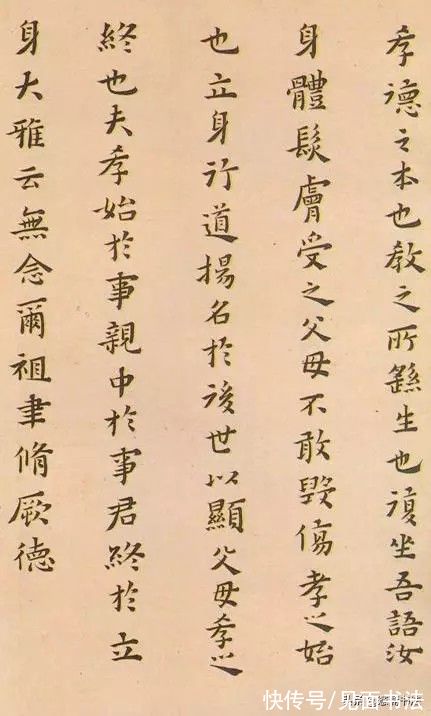 孝德之本也教之所繇生也復坐吾語汝
身體髮膚受之父母不敢毀傷孝之始
也立身行道揚名於後世以顯父母孝之
終也夫孝始於事親中於事君終於立
身大雅云無念爾祖聿脩厥德
快传号/见面书法